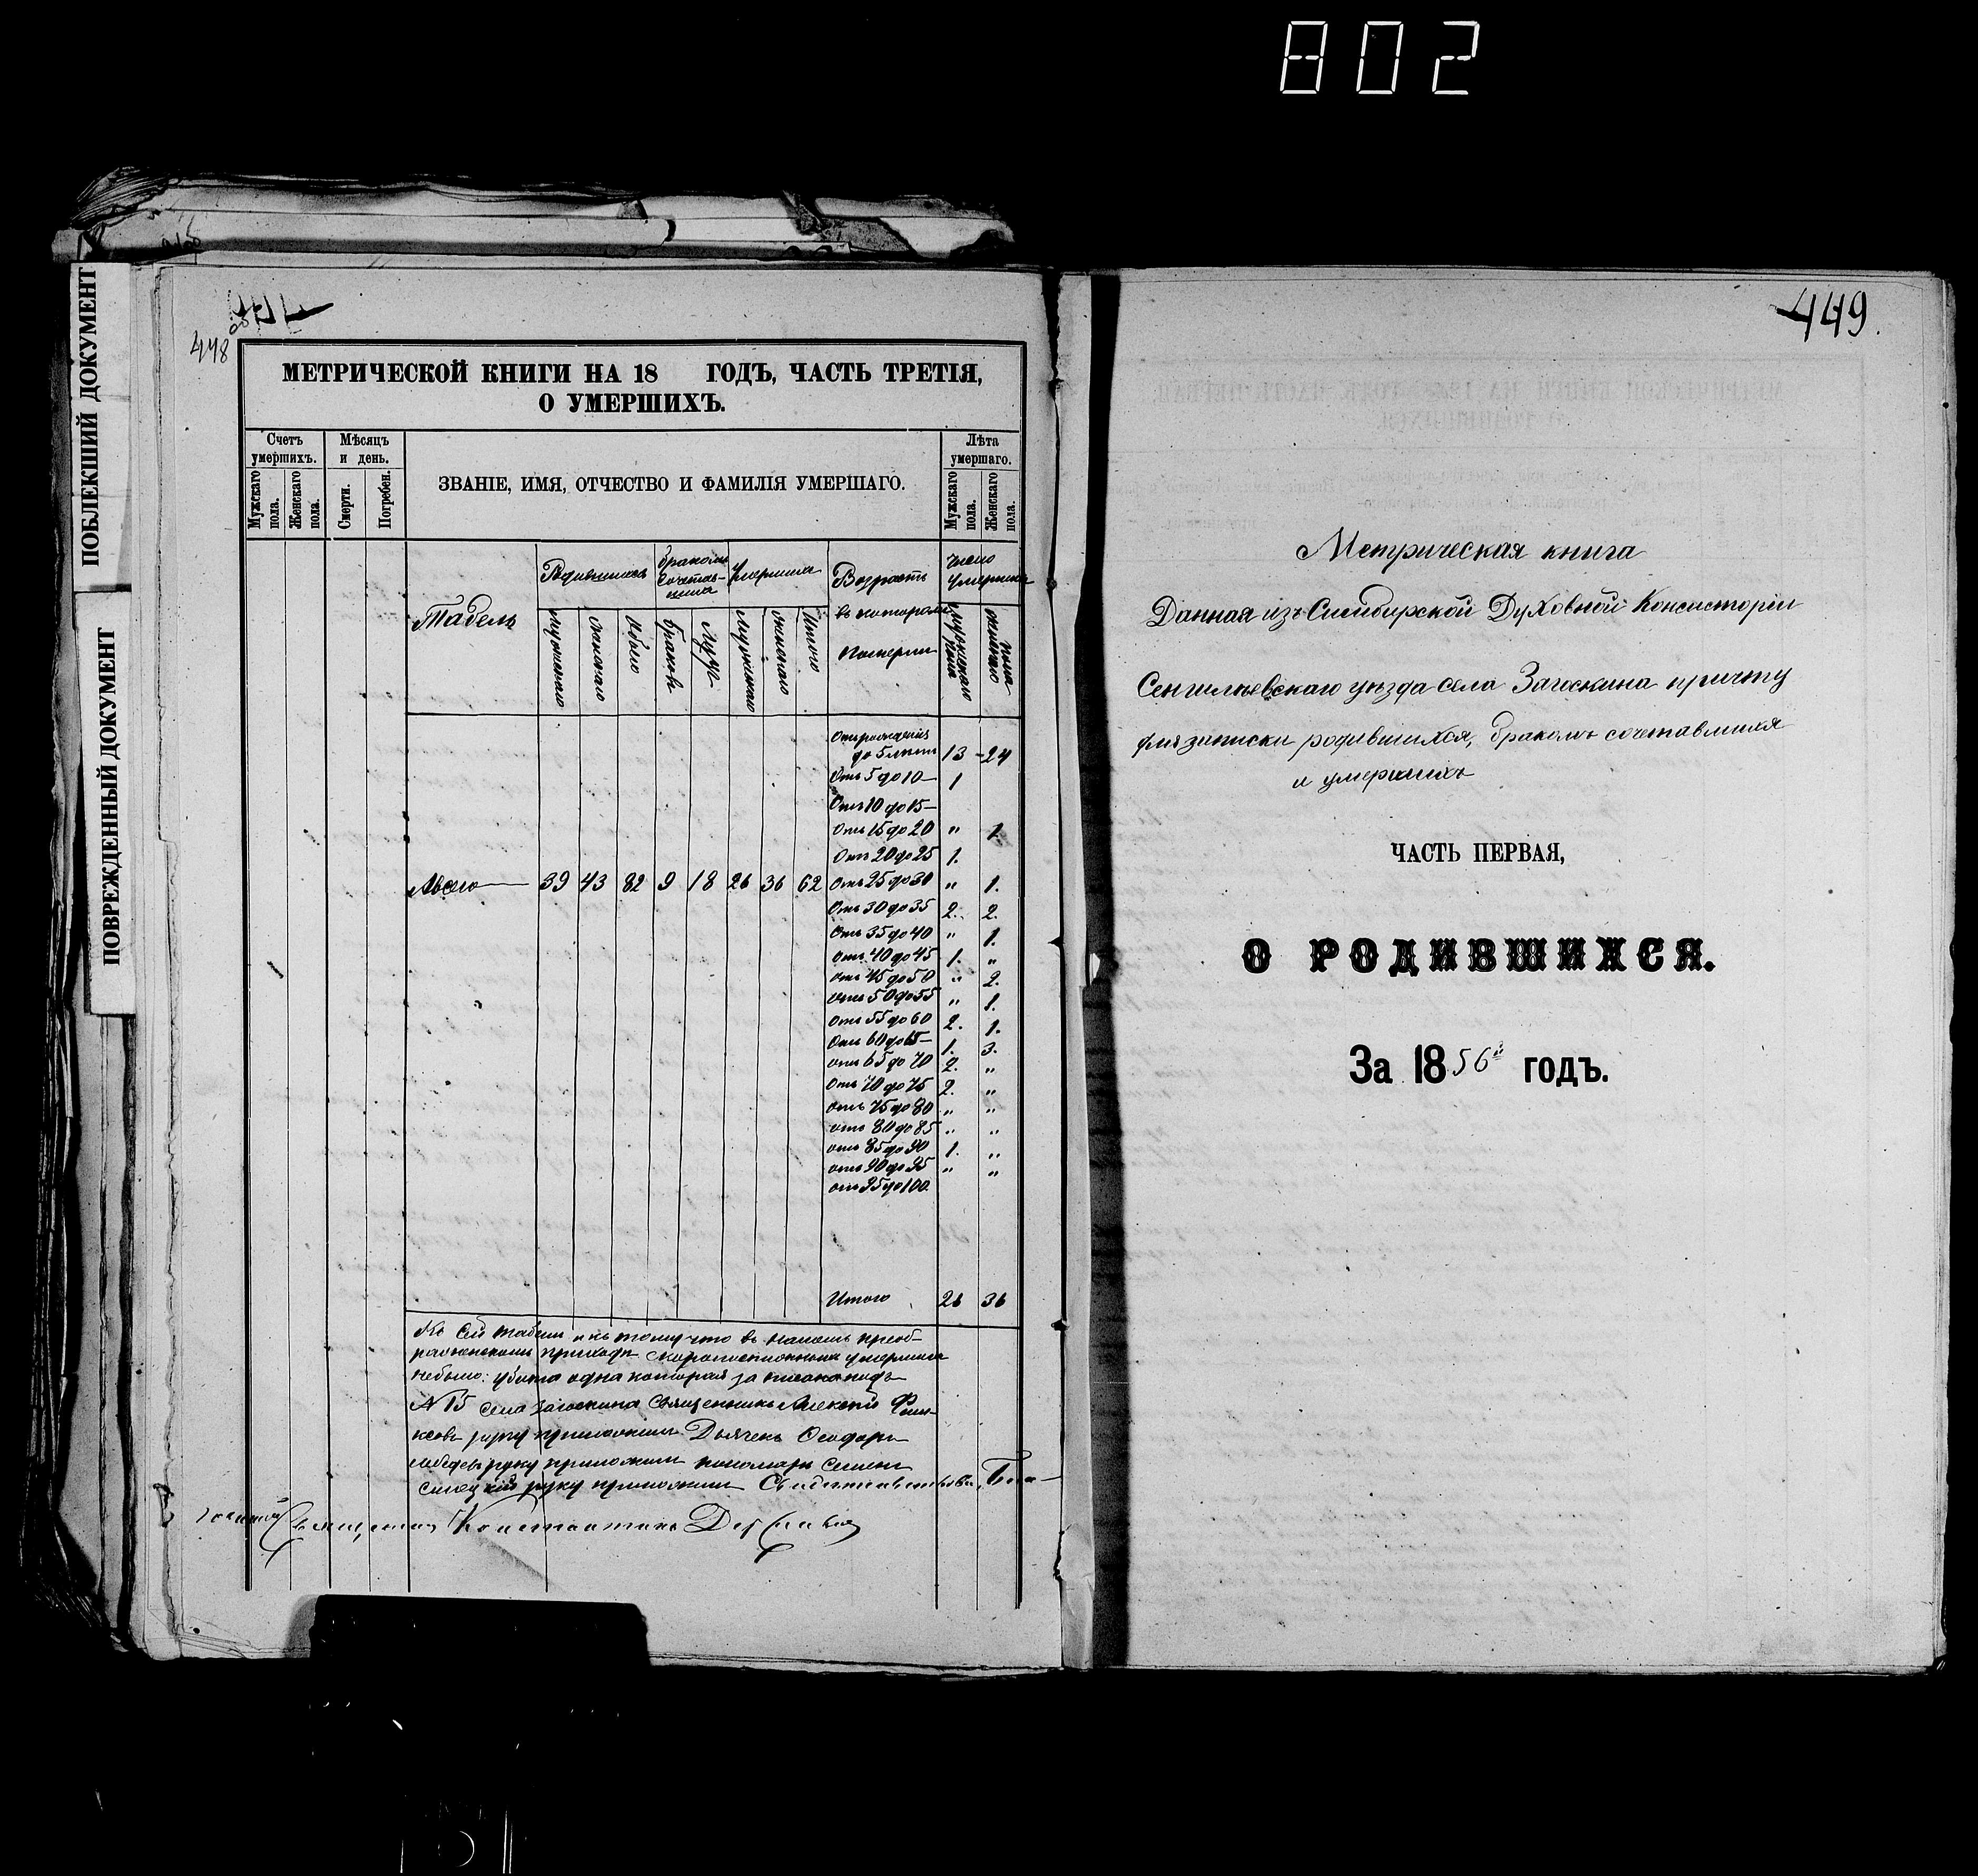 802
ПОБЛЕКШИЙ ДОКУМЕНТ
ПОВРЕЖДЕННЫЙ ДОКУМЕНТ
448 об
МЕТРИЧЕСКОЙ КНИГИ НА 18 ГОДЪ, ЧАСТЬ ТРЕТІЯ,
О УМЕРШИХЪ.
Счетъ умершихъ.
Мужскаго пола.
Женскаго пола.
Мѣсяцъ и день.
Смерти.
Погребен.
ЗВАНІЕ, ИМЯ, ОТЧЕСТВО И ФАМИЛІЯ УМЕРШАГО.
Лѣта умершаго.
Мужскаго пола.
Женскаго пола.
Табель
Родившихся
Бракомъ
Возрастъ
въ которомъ
померли
число
Мужескаго
Женскаго
Обоего
Браковъ
Мужескаго
Женскаго
Итого
Мужескаго пола
Женскаго пола
Отъ рожденія
до 5 лѣтъ 13 - 24
Отъ 5 до 10 1
Отъ 10 до 15
Отъ 15 до 20 " 1.
Отъ 20 до 25 1.
39 43 82 9 18 26 36 62 Отъ 25 до 30 " 1.
Отъ 30 до 35 2. 2.
Отъ 35 до 40 " 1.
отъ 40 до 45 1. "
отъ 45 до 50 " 2.
отъ 50 до 55 " 1.
Отъ 55 до 60 2. 1.
Отъ 60 до 65 1. 3.
отъ 65 до 70 2. "
Отъ 70 до 75 2. "
отъ 75 до 80 " "
отъ 80 до 85 " "
отъ 85 до 90 1. "
отъ 90 до 95 " "
отъ 95 до 100
Итого 26 36
Къ сей табели и къ тому что въ нашемъ
приходѣ скоропостижно
небыло: одна которая
села Загоскина Священникъ Алексѣй
руку приложилъ Дьячекъ Ѳеодоръ
руку приложилъ пономарь Семенъ
руку приложилъ
Священникъ Константинъ
449.
Метрическая книга
Данная изъ Симбирской Духовной Консисторіи
Сенгилѣевскаго уѣзда села Загоскина причту
для записки родившихся, бракомъ сочетавшихся
и умершихъ
ЧАСТЬ ПЕРВАЯ,
О РОДИВШИХСЯ.
За 1856й годъ.